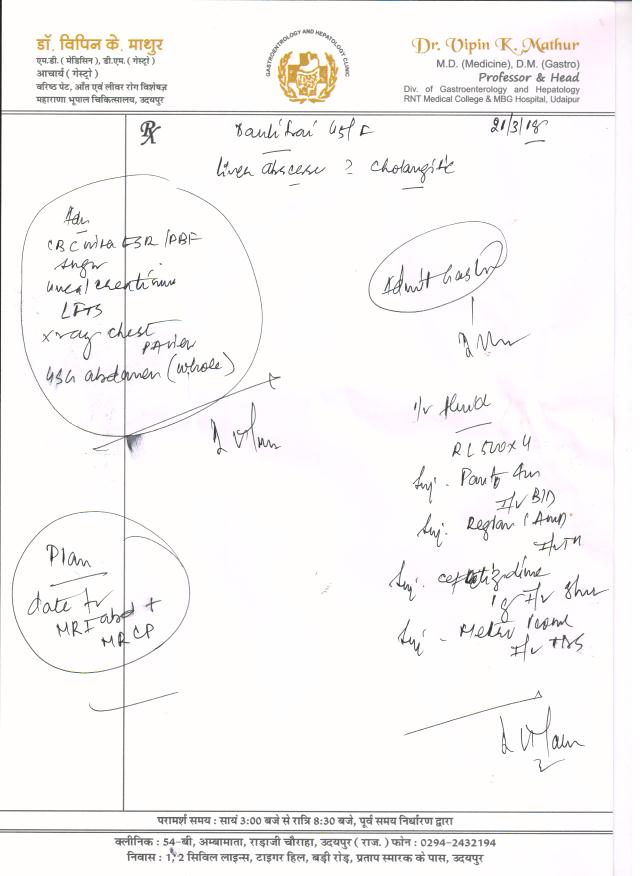 डॉ. विपिन के. माथुर
एम.डी. ( मेडिसिन ), डी.एम. ( गेस्ट्रो )
आचार्य ( गेस्ट्रो )
वरिष्ठ पेट, आँत एवं लीवर रोग विशेषज्ञ
महाराणा भूपाल चिकित्सालय, उदयपुर
GASTROENTROLOGY AND HEPATOLOGY CLINIC
Dr. Vipin K. Mathur
M.D. (Medicine), D.M. (Gastro)
Professor & Head
Div. of Gastroenterology and Hepatology
RNT Medical College & MBG Hospital, Udaipur
Rx
45/F
21/3/18
liver abscess ? cholangitis
Adv
CBC with ESR/PBF
sugar
urea/creatinine
LFTS
xray chest
PA view
USG abdomen (whole)
Admit Gastro
I/v fluid
RL 500x4
Inj. Panto
I/v BD
Inj. Reglan (Amp)
I/v
Inj. ceftazidime
1g I/v 8hr
Inj. Metro
I/v TDS
Plan
date for
MRI abd +
MRCP
परामर्श समय : सायं 3:00 बजे से रात्रि 8:30 बजे, पूर्व समय निर्धारण द्वारा
क्लीनिक : 54-बी, अम्बामाता, राड़ाजी चौराहा, उदयपुर ( राज. ) फोन : 0294-2432194
निवास : 1, 2 सिविल लाइन्स, टाइगर हिल, बड़ी रोड़, प्रताप स्मारक के पास, उदयपुर